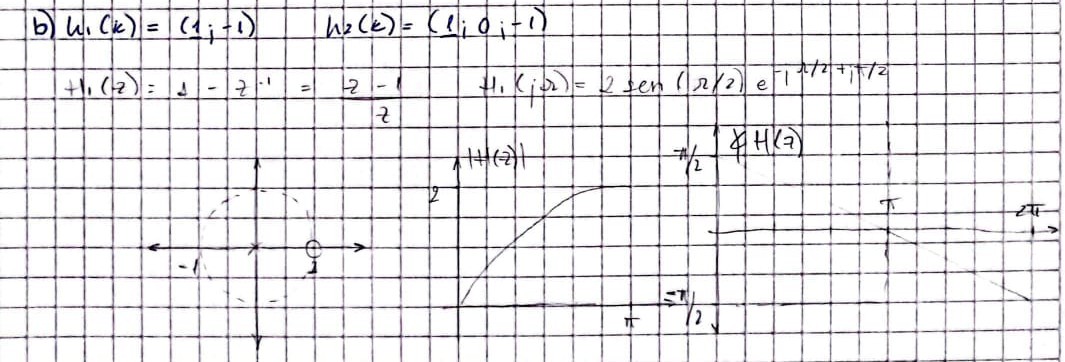 b) h₁(k) = (1; -1) h₂(k) = (1; 0; -1)
H₁(z) = 1 - z⁻¹ = z - 1 / z H₁(jΩ) = 2 sen(Ω/2) e^(-jΩ/2 + jπ/2)
|H(z)| π/2 ∡H(z)
2 π 2π
-1 1
π -π/2